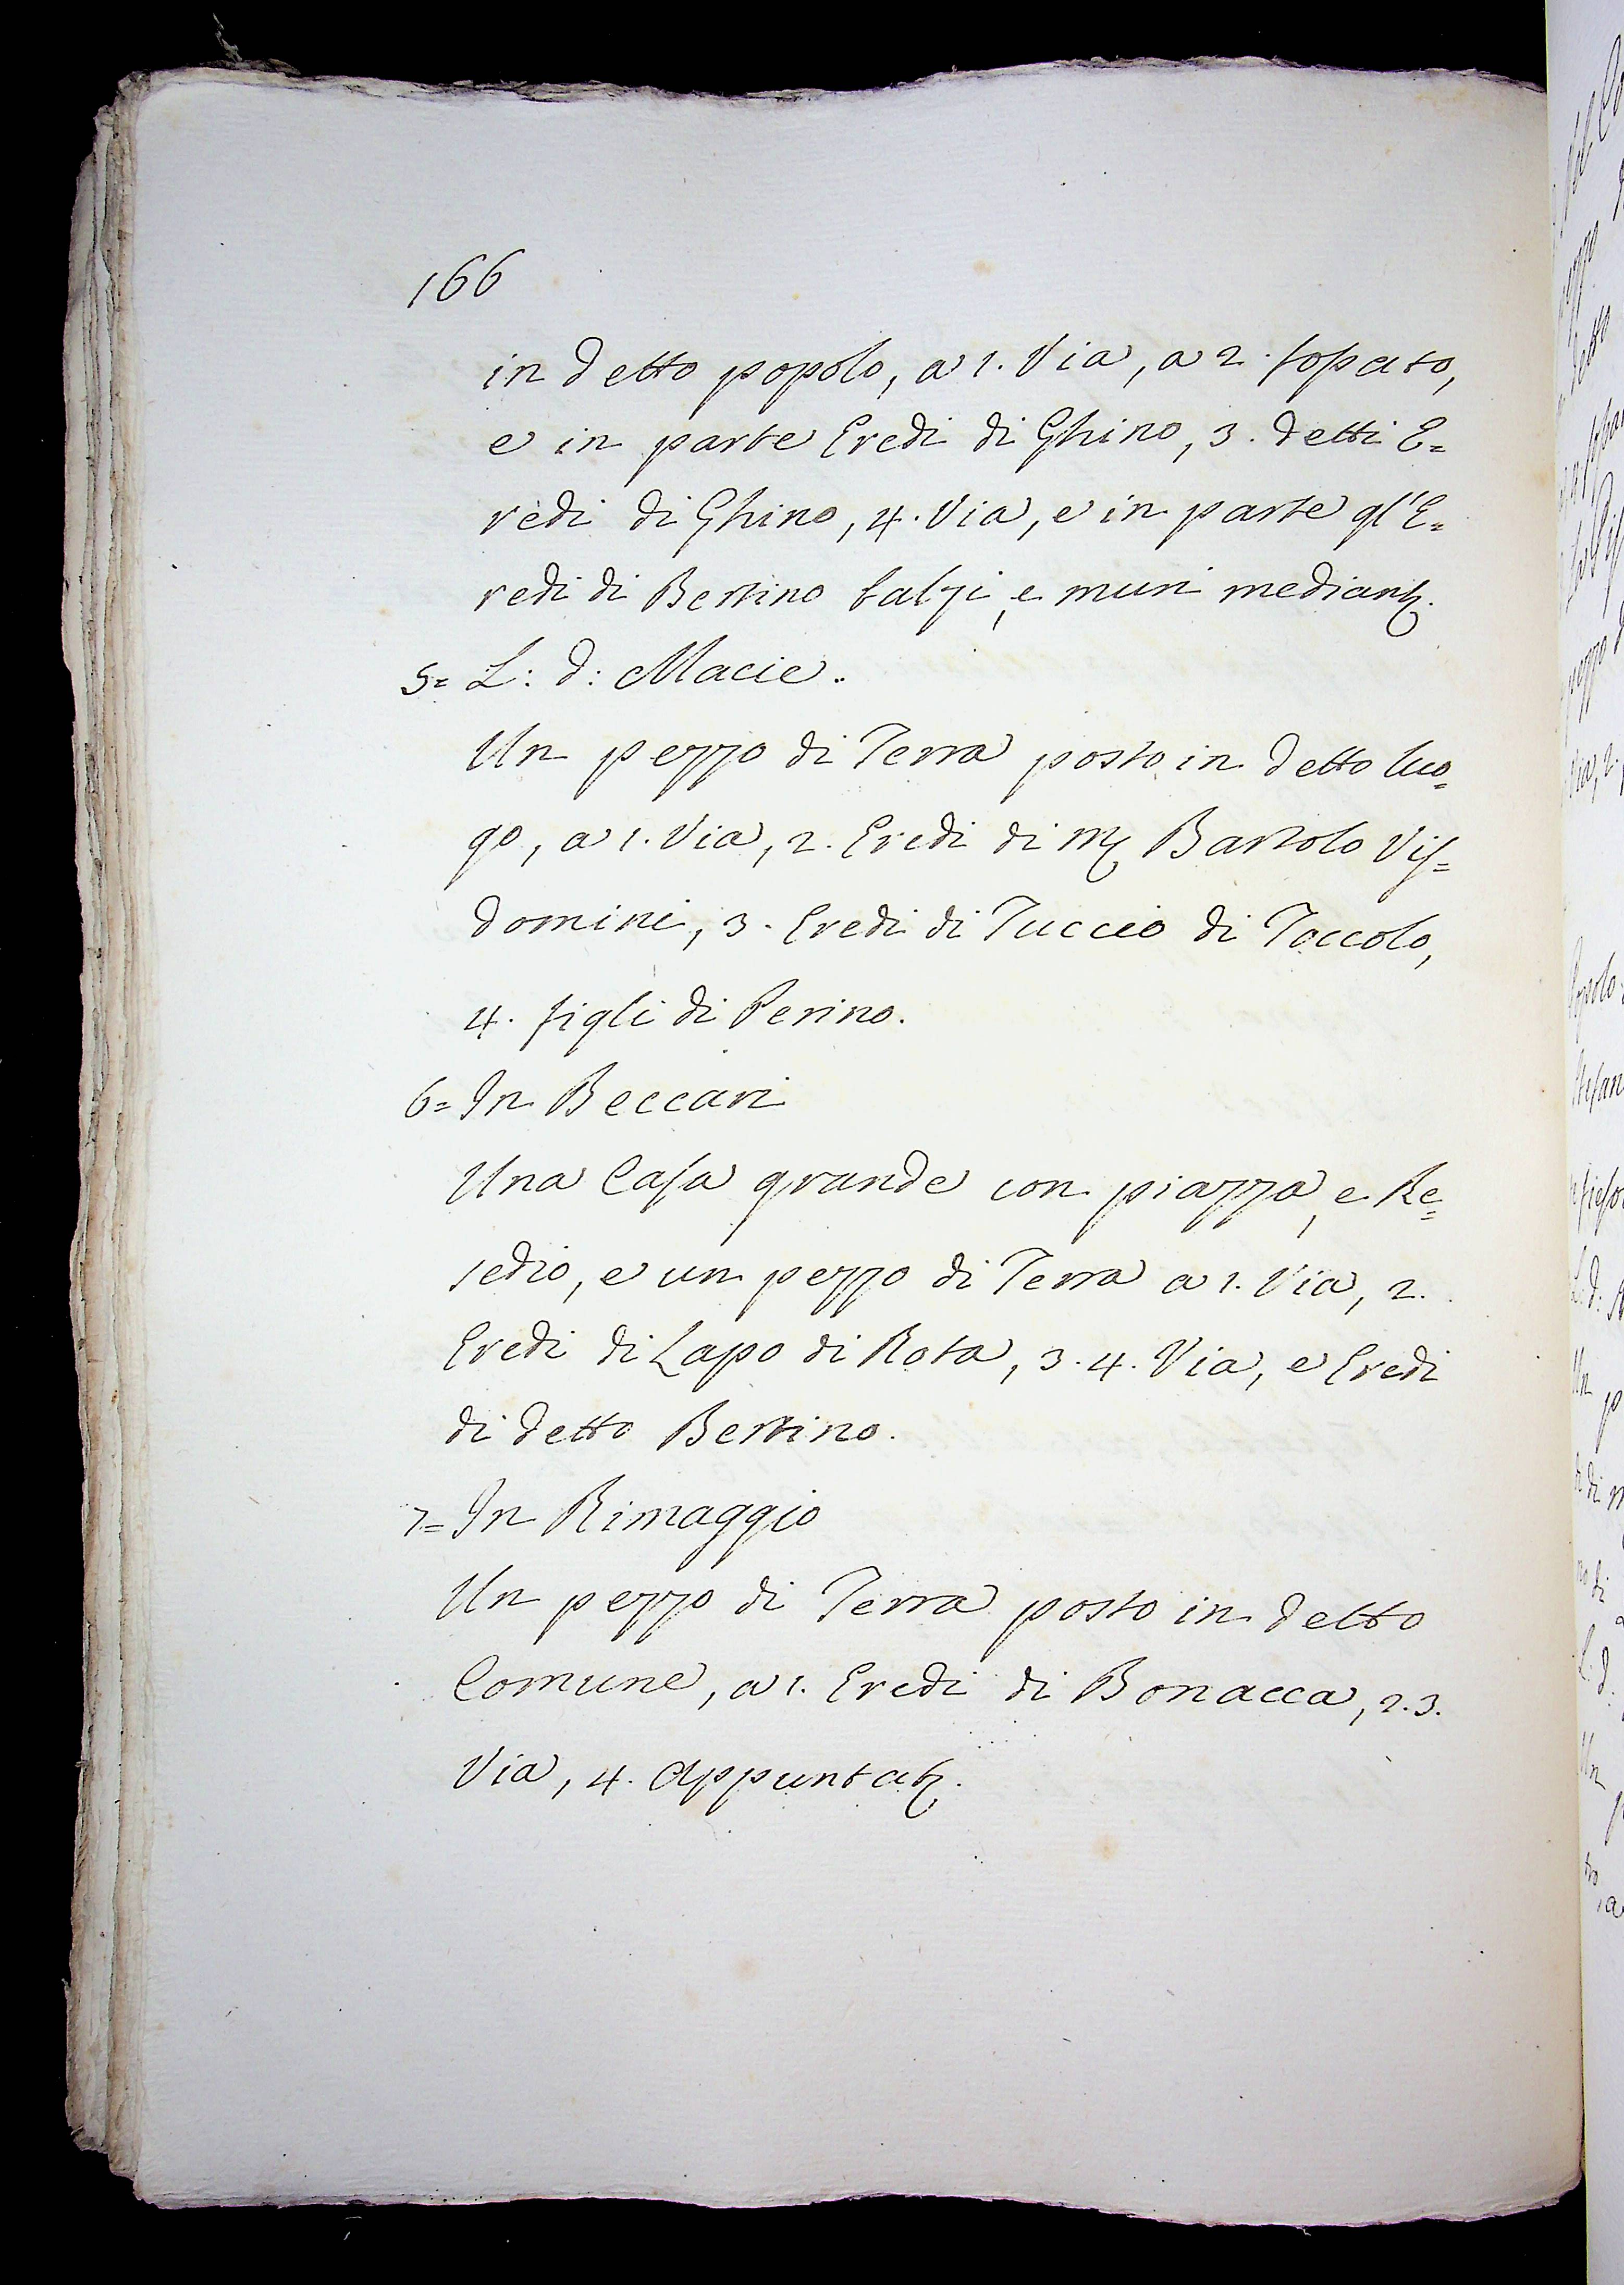 166
in detto popolo, a 1. Via, a 2. fossato,
e in parte Eredi di Ghino, 3. detti E=
redi di Ghino, 4. Via, e in parte gl'E=
redi di Bertino balzi, e muri mediant.
5= L: d: Macie.
Un pezzo di Terra posto in detto luo=
go, a 1. Via, 2. Eredi di M. Bartolo Vis=
domini, 3. Eredi di Tuccio di Toccolo,
4. figli di Perino.
6= In Beccari
Una Casa grande con piazza, e Re=
sedio, e un pezzo di Terra a 1. Via, 2.
Eredi di Lapo di Rota, 3. 4. Via, e Eredi
di detto Bertino.
7= In Rimaggio
Un pezzo di Terra posto in detto
Comune, a 1. Eredi di Bonacca, 2. 3.
Via, 4. Appuntat.